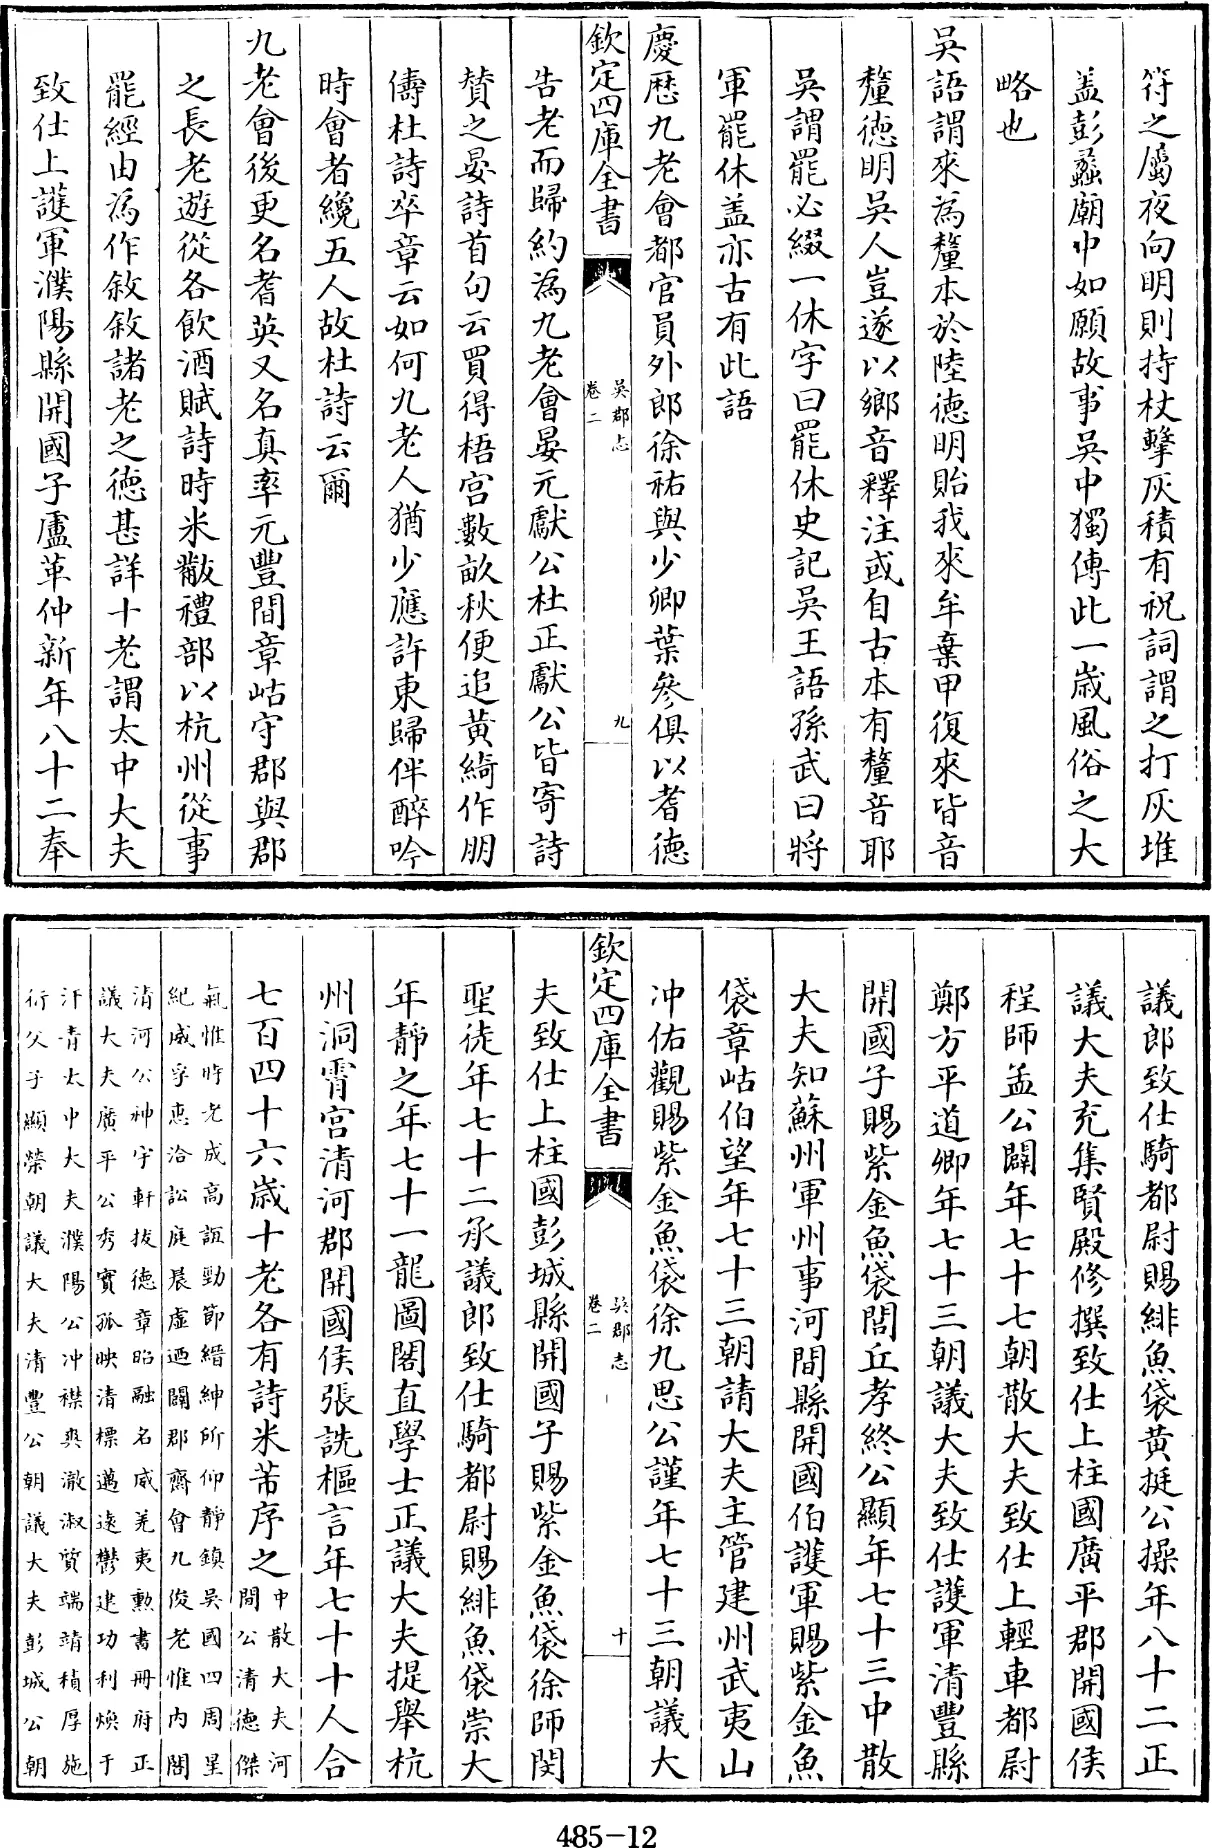 符之屬夜向明則持杖擊灰積有祝詞謂之打灰堆
盖彭蠡廟中如願故事吳中獨傳此一歲風俗之大
略也
吳語謂來為釐本於陸德明貽我來牟棄甲復來皆音
釐德明吳人豈遂以鄉音釋注或自古本有釐音耶
吳謂罷必綴一休字曰罷休史記吳王語孫武曰將
軍罷休盖亦古有此語
慶歷九老會都官員外郎徐祐與少卿葉參俱以耆德
欽定四庫全書
吳郡志
卷二
九
告老而歸約為九老會晏元獻公杜正獻公皆寄詩
賛之晏詩首句云買得梧宫數畝秋便追黄綺作朋
儔杜詩卒章云如何九老人猶少應許東歸伴醉吟
時會者纔五人故杜詩云爾
九老會後更名耆英又名真率元豐間章岵守郡與郡
之長老遊從各飲酒賦詩時米黻禮部以杭州從事
罷經由為作敘敘諸老之德甚詳十老謂太中大夫
致仕上護軍濮陽縣開國子盧革仲新年八十二奉
議郎致仕騎都尉賜緋魚袋黄挺公操年八十二正
議大夫充集賢殿修撰致仕上柱國廣平郡開國侯
程師孟公闢年七十七朝散大夫致仕上輕車都尉
鄭方平道卿年七十三朝議大夫致仕護軍清豐縣
開國子賜紫金魚袋閭丘孝終公顯年七十三中散
大夫知蘇州軍州事河間縣開國伯護軍賜紫金魚
袋章岵伯望年七十三朝請大夫主管建州武夷山
冲佑觀賜紫金魚袋徐九思公謹年七十三朝議大
欽定四庫全書
吳郡志
卷二
十
夫致仕上柱國彭城縣開國子賜紫金魚袋徐師閔
聖徒年七十二承議郎致仕騎都尉賜緋魚袋崇大
年靜之年七十一龍圖閣直學士正議大夫提舉杭
州洞霄宫清河郡開國侯張詵樞言年七十十人合
七百四十六歲十老各有詩米芾序之
中散大夫河
間公清德傑
氣惟時老成高誼勁節縉紳所仰靜鎮吳國四周星
紀威孚惠洽訟庭晨虛廼闢郡齋會九俊老惟内閤
清河公神宇軒拔德章昭融名威羌夷勲書冊府正
議大夫廣平公秀實孤映清標邁遠鬱建功利煥于
汗青太中大夫濮陽公冲襟爽澈淑質端靖積厚施
衍父子顯榮朝議大夫清豐公朝議大夫彭城公朝
485-12